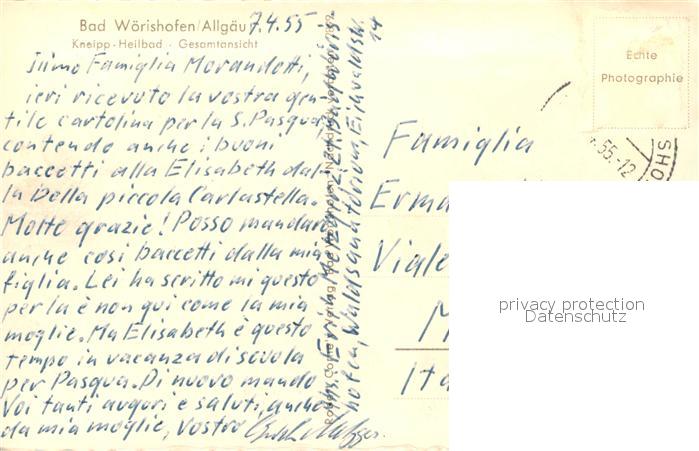 Bad Wörishofen/Allgäu 7.4.55
Kneipp-Heilbad · Gesamtansicht
Famiglia Morandotti,
ieri ricevuto la vostra gen-
tile cartolina per la S. Pasqua,
contendo anche i buoni
baccetti alla Elisabeth dal-
la bella piccola Carlastella.
Motte grazie! Posso mandar
anche cosi baccetti dalla mia
figlia. Lei ha scritto mi questo
per la è non qui come la mia
moglie. Ma Elisabeth è questo
tempo in vacanza di scuola
per Pasqua. Di nuovo mando
Voi tanti augori e saluti, anche
da mia moglie, Vostro
Erich Metzger, Bad Wöris-
hofen, Waldsanatorium, Eichwaldstr.
14
Echte
Photographie
.55.-12
SHO
Famiglia
Erma
Viale
M
Ita
privacy protection
Datenschutz